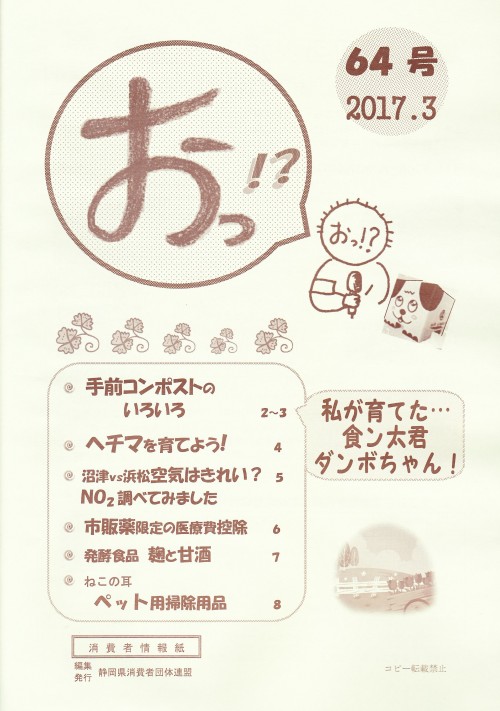 64 号
2017.3
おっ!?
おっ!?
手前コンポストの
いろいろ 2~3
ヘチマを育てよう! 4
沼津vs浜松空気はきれい? 5
NO2調べてみました
市販薬限定の医療費控除 6
発酵食品 麹と甘酒 7
ねこの耳
ペット用掃除用品 8
私が育てた…
食ン太君
ダンボちゃん!
消費者情報紙
編集
発行 静岡県消費者団体連盟
コピー転載禁止